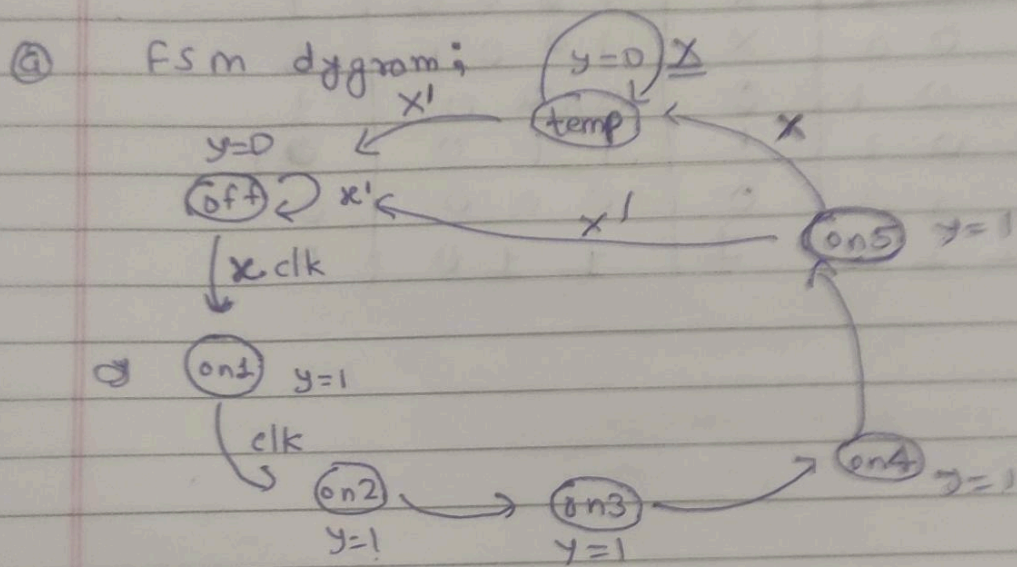 ⓐ FSM dygram;
y=0 x
x'
temp
x
y=0
off x'
x'
on5 y=1
x clk
on1 y=1
clk
on4
y=1
on2
on3
y=1
y=1